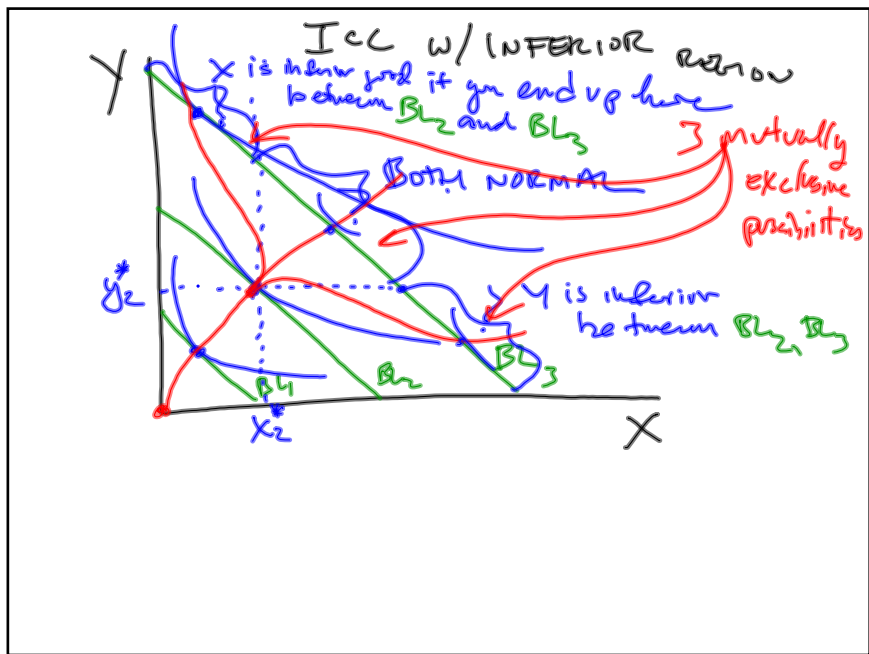 ICC W/ INFERIOR REGION
Y
X is inferior good if you end up here
between BL2 and BL3
3 mutually
exclusive
possibilities
BOTH NORMAL
y2*
Y is inferior
between BL2, BL3
BL1
BL2
BL3
x2*
X